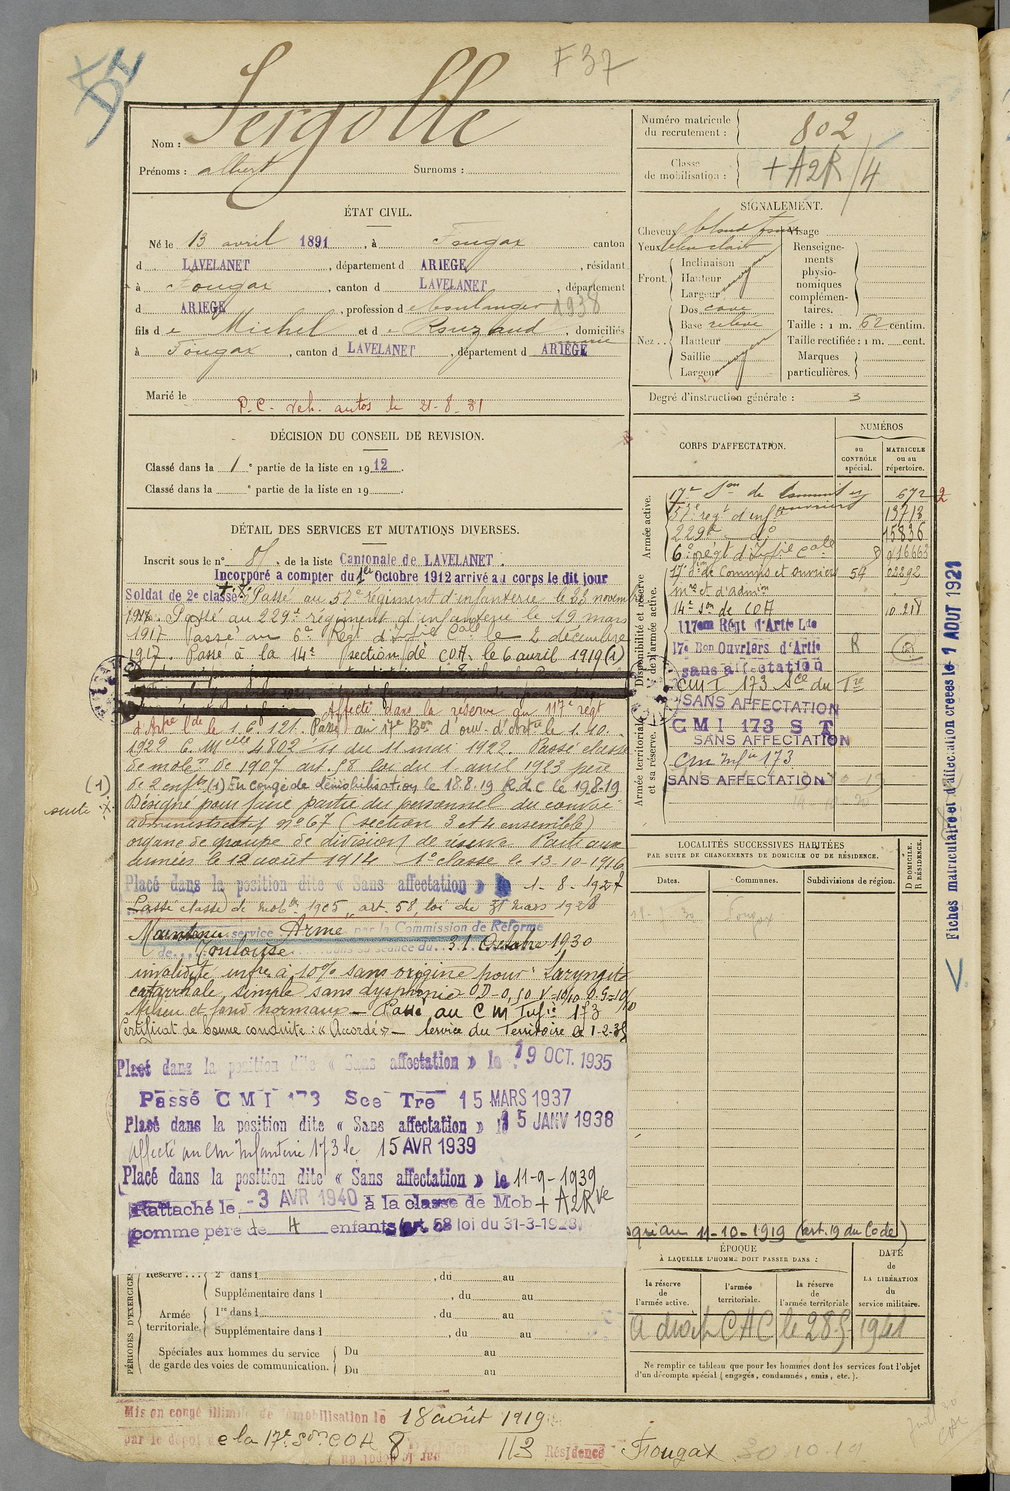 F 37
Nom : Sergolle
Prénoms : albert Surnoms :
Numéro matricule du recrutement : 802
Classe de mobilisation : + A2R/4
ÉTAT CIVIL.
Né le 13 avril 1891, à Fougax canton
d LAVELANET, département d ARIEGE, résidant
à Fougax, canton d LAVELANET, département
d ARIEGE, profession d boulanger 1938
fils de Michel et de Rouzaud, domiciliés
à Fougax, canton d LAVELANET, département d ARIEGE
Marié le
P.C. veh. autos le 21-8-31
SIGNALEMENT.
Cheveux blond Visage
Yeux bleu clair
Front. Inclinaison
Hauteur moyen
Largeur
Nez. Dos cave
Base relevé
Hauteur
Saillie moyen
Largeur
Renseignements physionomiques complémentaires.
Taille : 1 m. 62 centim.
Taille rectifiée : 1 m. cent.
Marques particulières.
Degré d'instruction générale : 3
DÉCISION DU CONSEIL DE REVISION.
Classé dans la 1e partie de la liste en 1912.
Classé dans la e partie de la liste en 19 .
DÉTAIL DES SERVICES ET MUTATIONS DIVERSES.
Inscrit sous le n° de la liste Cantonale de LAVELANET.
Incorporé a compter du 1er Octobre 1912 arrivé au corps le dit jour
Soldat de 2e classe Passé au 57e régiment d'infanterie le 23 novemb
Passé au 229e régiment d'infanterie le 19 mars
1917 Passé au 6e Régt d'Inftie Cale le 2 décembre
1917. Passé à la 14e section de COA le 6 avril 1919 (1)
Affecté dans la réserve au 117e régt
d'Artie Lde le 1.6.121. Passé au 17e Bon d'ouv. d'Artie le 1.10.
1922 C. Mielle 4802 11 du 11 mai 1922. Passé classe
de mobon de 1907 art. 58 loi du 1 avril 1923 père
de 2 enfts (1) En congé de démobilisation le 18.8.19 R.d.C le 19.8.19
(1) suite
Désigné pour faire partie du personnel du convoi
administratif n° 67 (section 3 et 4 ensemble)
organe de groupe de division de réserve Parti aux
armées le 12 août 1914 1e classe le 13.10.1916
Placé dans la position dite « Sans affectation » le 1-8-1927
Passé classe de mobon 1905, art. 58, loi du 31 mars 1928
Maintenu service Armé par la Commission de Réforme
de Toulouse dans sa séance du 31 Octobre 1930
invalidité infre à 10% sans origine pour : Laryngite
catarrhale simple sans dysphonie OD-0,10 V=10/10 O.G=10/10
Milieu et fond normaux - Passé au C M Infie 173
Certificat de bonne conduite : « Accordé » - Service du Territoire le 1-2-35
Placé dans la position dite « Sans affectation » le 19 OCT. 1935
Passé C M I 173 See Tre 15 MARS 1937
Placé dans la position dite « Sans affectation » le 15 JANV 1938
affecté au Cm Infanterie 173 le 15 AVR 1939
Placé dans la position dite « Sans affectation » le 11-9-1939
Rattaché le -3 AVR 1940 à la classe de Mob + A2Rve
comme père de 4 enfants (art. 58 loi du 31-3-1928)
CORPS D'AFFECTATION.
NUMÉROS
au CONTRÔLE spécial.
MATRICULE ou au répertoire.
Armée active.
Disponibilité et réserve de l'armée active.
Armée territoriale et sa réserve.
17e Son de Commis et ouvriers 672
57e regt d'infie 13713
229e do 15836
6e régt d'Inftie Cale 8 16663
17e Son de Commis et ouvriers 54 02292
mres d'admon
14e Son de COA 10.218
117eme Régt d'Artie Lde
17e Bon Ouvriers d'Artie R
sans affectation
CMI 173 Sce du Tre
SANS AFFECTATION
C M I 173 S T
SANS AFFECTATION
Cm Infie 173
SANS AFFECTATION
LOCALITÉS SUCCESSIVES HABITÉES
PAR SUITE DE CHANGEMENTS DE DOMICILE OU DE RÉSIDENCE.
Dates. Communes. Subdivisions de région. D DOMICILE. R RÉSIDENCE.
Fougax
11-10-1919 (art. 19 du Code)
ÉPOQUE
À LAQUELLE L'HOMME DOIT PASSER DANS :
la réserve de l'armée active.
l'armée territoriale.
la réserve de l'armée territoriale
DATE de LA LIBÉRATION du service militaire.
a droit CAC le 28.5.1941
Ne remplir ce tableau que pour les hommes dont les services font l'objet
d'un décompte spécial (engagés, condamnés, omis, etc.).
PÉRIODES D'EXERCICES
Réserve... 2e dans l , du au
Supplémentaire dans l , du au
Armée territoriale. 1re dans l , du au
Supplémentaire dans l , du au
Spéciales aux hommes du service
de garde des voies de communication. Du au
Du au
Mis en congé illimité de démobilisation le 18 août 1919
par le dépôt de la 17e Son COA 8 113 Résidence Fougax 30.10.19
Fiches matriculaire et d'affectation créées le 1 AOUT 1921